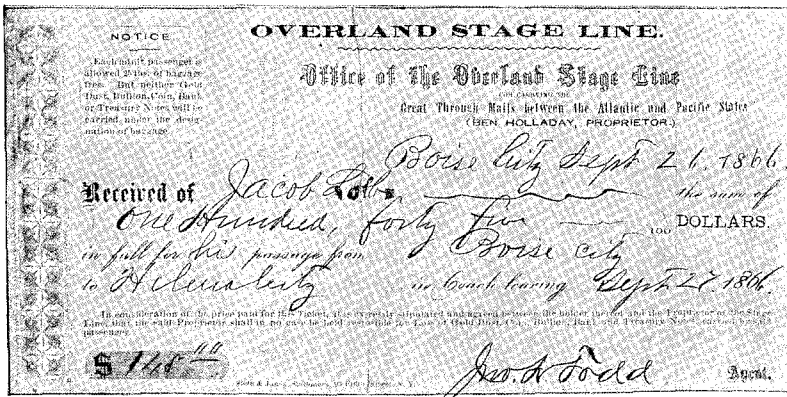 NOTICE
Each adult passenger is
allowed 25 lbs. of baggage
free. But neither Gold
Dust, Bullion, Coin, Bank
or Treasury Notes, will be
carried under the desig-
nation of baggage.
OVERLAND STAGE LINE.
Office of The Overland Stage Line
FOR CARRYING THE
Great Through Mails between the Atlantic and Pacific States
(BEN HOLLADAY, PROPRIETOR.)
Boise City Sept 26, 1866.
Received of Jacob the sum of
One Hundred, forty five 100 DOLLARS.
in full for his passage from Boise City
to Helena City in Coach leaving Sept 27 1866.
In consideration of the price paid for this Ticket, it is expressly stipulated and agreed between the holder thereof and the Proprietor of the Stage
Line, that the said Proprietor shall in no case be held responsible for Loss of Gold Dust, Coin, Bullion, Bank and Treasury Notes, carried by said
passenger.
$ 145 00
Jno. W Todd Agent.